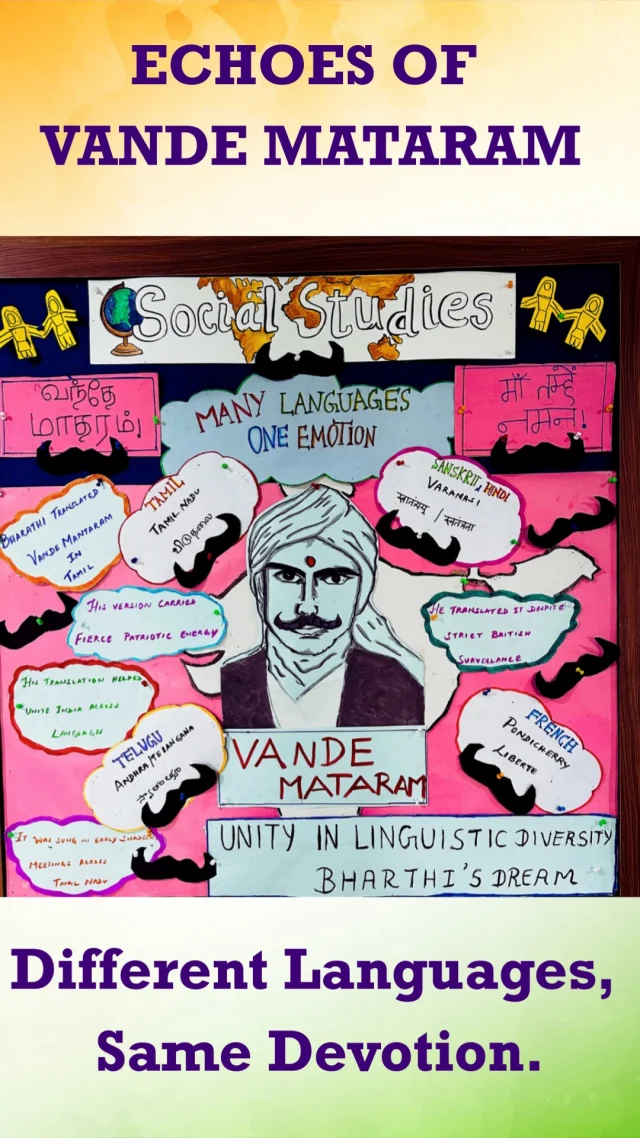 ECHOES OF
VANDE MATARAM
Social Studies
வந்தே
மாதரம்!
MANY LANGUAGES
ONE EMOTION
माँ तुम्हें
नमन!
BHARATHI TRANSLATED
VANDE MANTARAM
IN
TAMIL
TAMIL
TAMIL NADU
விடுதலை
SANSKRIT, HINDI
VARANASI
स्वतंत्रता
HIS VERSION CARRIED
FIERCE PATRIOTIC ENERGY
HE TRANSLATED IT DESPITE
STRICT BRITISH
SURVEILLANCE
HIS TRANSLATION HELPED
UNITE INDIA ACROSS
LANGUAGES
TELUGU
ANDHRA/TELANGANA
FRENCH
PONDICHERRY
LIBERTE
VANDE
MATARAM
IT WAS SUNG IN EARLY
MEETINGS ACROSS
TAMIL NADU
UNITY IN LINGUISTIC DIVERSITY
BHARTHI'S DREAM
Different Languages,
Same Devotion.